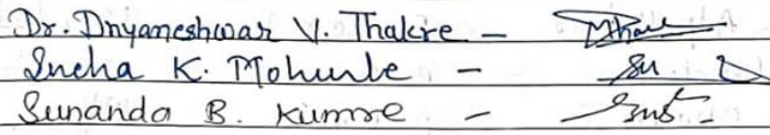 Dr. Dnyaneshwar V. Thakre -
Sneha K. Mohurle -
Sunanda B. Kumre -